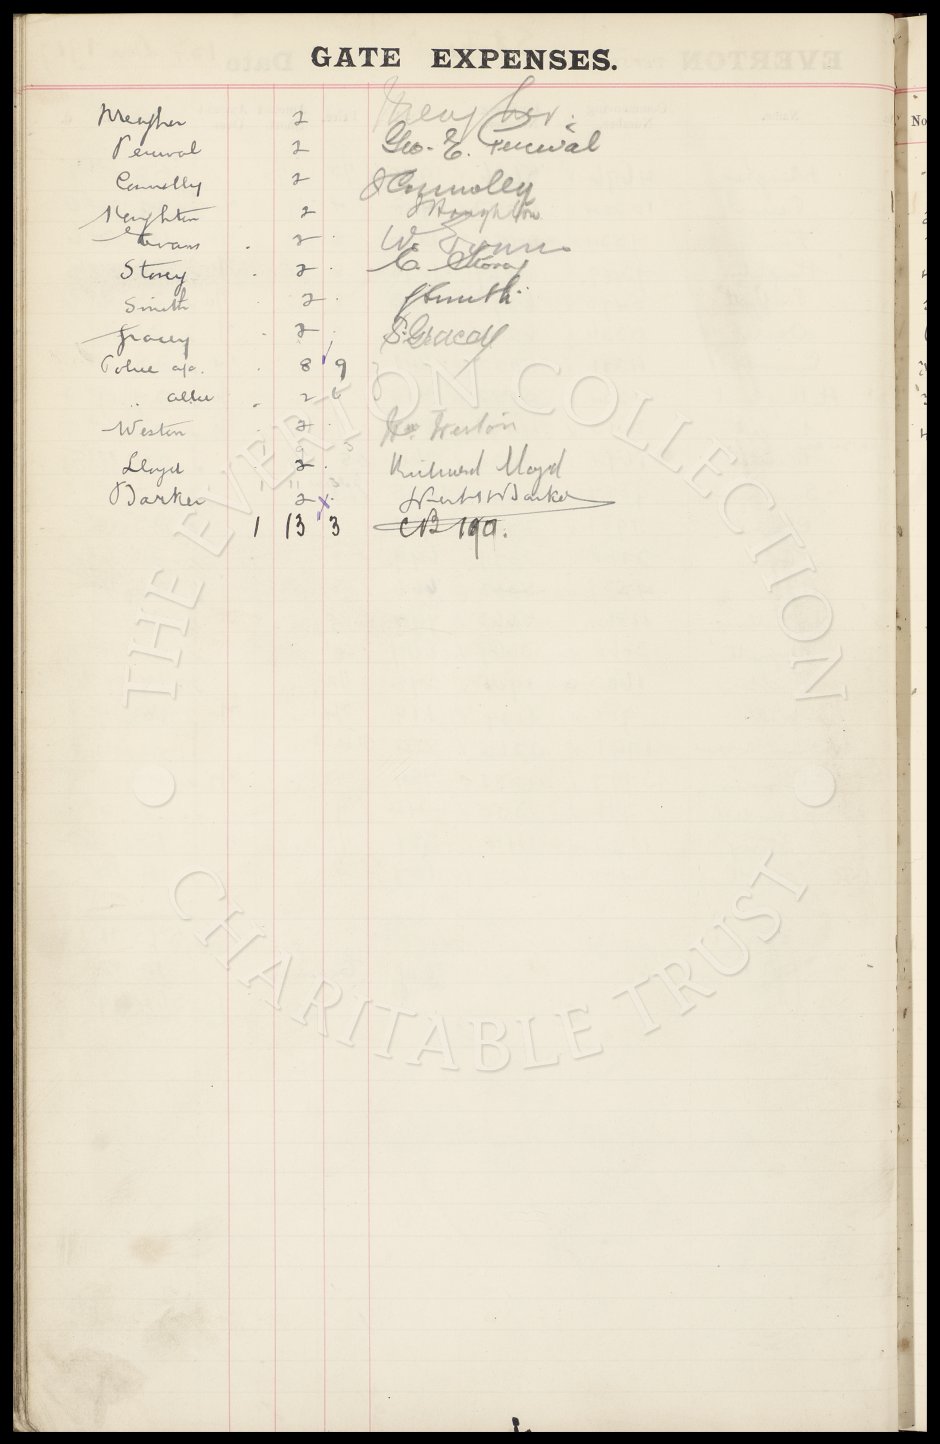 GATE EXPENSES.
Meagher 2 Meagher.
Percival 2 Geo. E. Percival
Connolly 2 J Connolly
Houghton 2 J Houghton
Evans . 2 . W. Evans
Storey . 2 . C. Storey
Smith . 2 . J Smith.
Gracey . 2 . S. Gracey
Police a/c. . 8 9
" . 2 6
Weston . 2 . Wm Weston
Lloyd . 2 . Richard Lloyd
Barker 2 . Barker
1 13 3 CB 190.
No
THE EVERTON COLLECTION
CHARITABLE TRUST